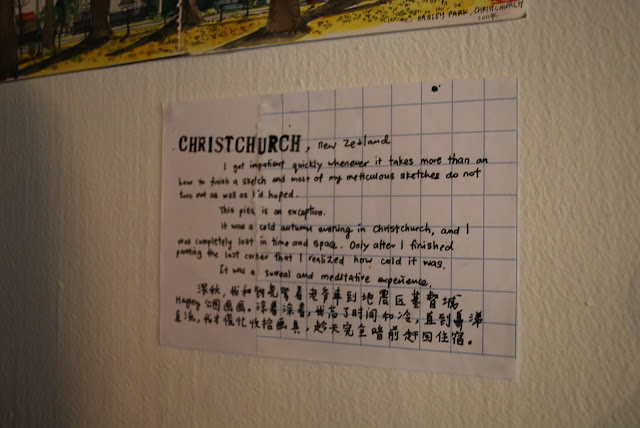 HAGLEY PARK, CHRISTCHURCH
CHRISTCHURCH, new zealand
I get impatient quickly whenever it takes more than an
hour to finish a sketch and most of my meticulous sketches do not
turn out as well as I'd hoped.
This piece is an exception.
It was a cold autumn evening in Christchurch, and I
was completely lost in time and space. Only after I finished
painting the last corner that I realized how cold it was.
It was a surreal and meditative experience.
深秋,我和 驾着老爷车到地震区基督城
Hagley 公园画画。涂着涂着,我忘了时间和冷,直到鼻涕
直流,我才慌忙收拾画具,趁天完全暗前赶回住宿。